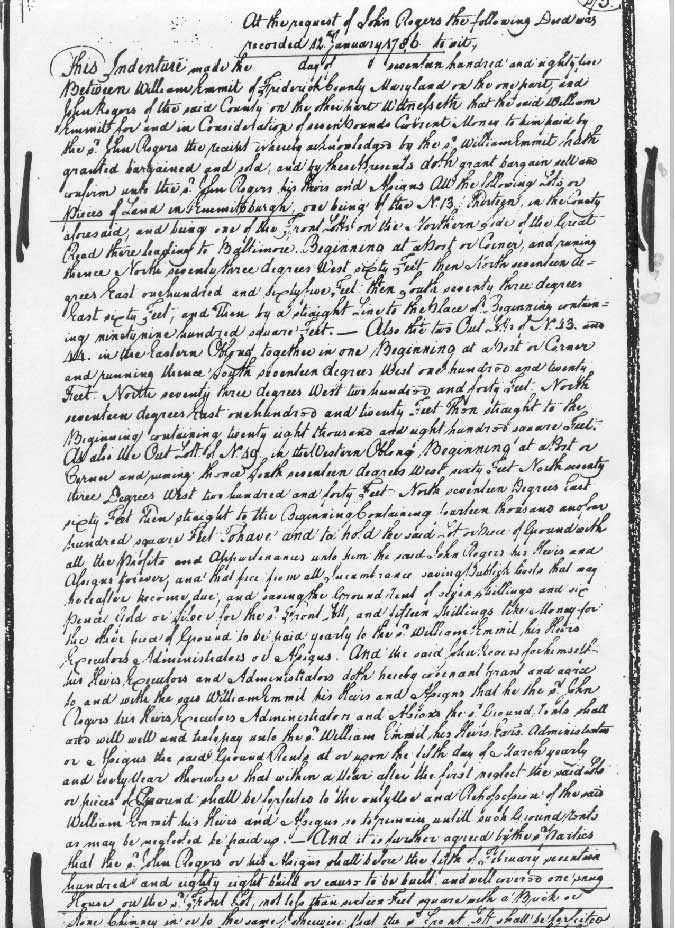 At the request of John Rogers the following Deed was
recorded 12th January 1786 to wit,
This Indenture made the day of seventeen hundred and eighty five
Between William Emmit of Frederick County Maryland on the one part, and
John Rogers of the said County on the other part Witnesseth that the said William
Emmit for and in Consideration of seven Pounds Current Money to him paid by
the sd. John Rogers the receipt whereby acknowledged by the sd. William Emmit hath
granted bargained and sold, and by these Presents doth grant bargain sell and
confirm unto the sd. John Rogers his Heirs and Assigns All the following Lots or
Pieces of Land in Emmitsburgh, one being of the No. 13, Thirteen, in the County
aforesaid, and being one of the Front Lotts on the Northern side of the Great
Road there leading to Baltimore. Beginning at a Post or Corner, and runing
thence North seventy three degrees West sixty Feet then North seventeen de-
grees East one hundred and sixty five Feet then South seventy three degrees
East sixty Feet, and Then by a straight Line to the Place of Beginning contain-
ing ninety nine hundred square Feet. — Also the two Out Lotts of No. 43. and
44. in the Eastern Oblong together in one Beginning at a Post or Corner
and running thence South seventeen degrees West one hundred and twenty
Feet. North seventy three degrees West two hundred and forty Feet. North
seventeen degrees East one hundred and twenty Feet Then straight to the
Beginning containing twenty eight thousand and eight hundred square Feet.
As also the Out Lott of No. in the Western Oblong Beginning at a Post or
Corner and runing thence South seventeen degrees West sixty Feet North seventy
three Degrees West two hundred and forty Feet North seventeen Degrees East
sixty Feet Then straight to the Beginning Containing fourteen thousand and four
hundred square Feet. To have and to hold the said Lot or Piece of Ground with
all the Profits and Appurtenances unto him the said John Rogers his Heirs and
Assigns forever, and that free from all Incumbrance saving Publick Costs that may
hereafter become due, and saving the Ground Rent of seven shillings and six
pence Gold or Silver for the sd. Front Lott, and fifteen Shillings like Money for
the other piece of Ground to be paid yearly to the sd. William Emmit his Heirs
Executors Administrators or Assigns. And the said John Rogers for himself
his Heirs Executors and Administrators doth hereby covenant grant and agree
to and with the said William Emmit his Heirs and Assigns that he the sd. John
Rogers his Heirs Executors Administrators and Assigns the sd. Ground Rents shall
and will well and truly pay unto the sd. William Emmit his Heirs Administrators
or Assigns the said Ground Rents at or upon the fifth day of March yearly
and every Year otherwise that within a Year after the first neglect the said Lots
or pieces of Ground shall be forfeited to the only Use and Repossession of the said
William Emmit his Heirs and Assigns so to remain untill such Ground Rents
as may be neglected be paid up. — And it is further agreed by the sd. Parties
that the sd. John Rogers or his Assigns shall before the fifth of February seventeen
hundred and eighty eight build or cause to be built and well covered one snug
House on the sd. Front Lot, not less than sixteen Feet square with a Brick or
stone Chimney in or to the same, otherwise that the sd. Front Lott shall be forfeited